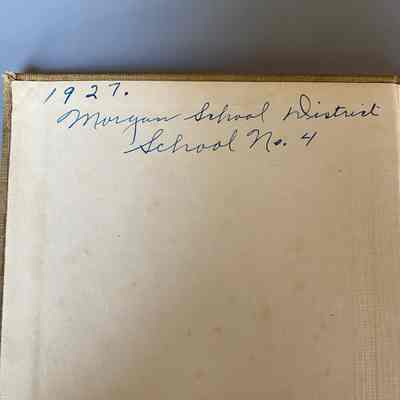 1927.
Morgan School District
School No. 4